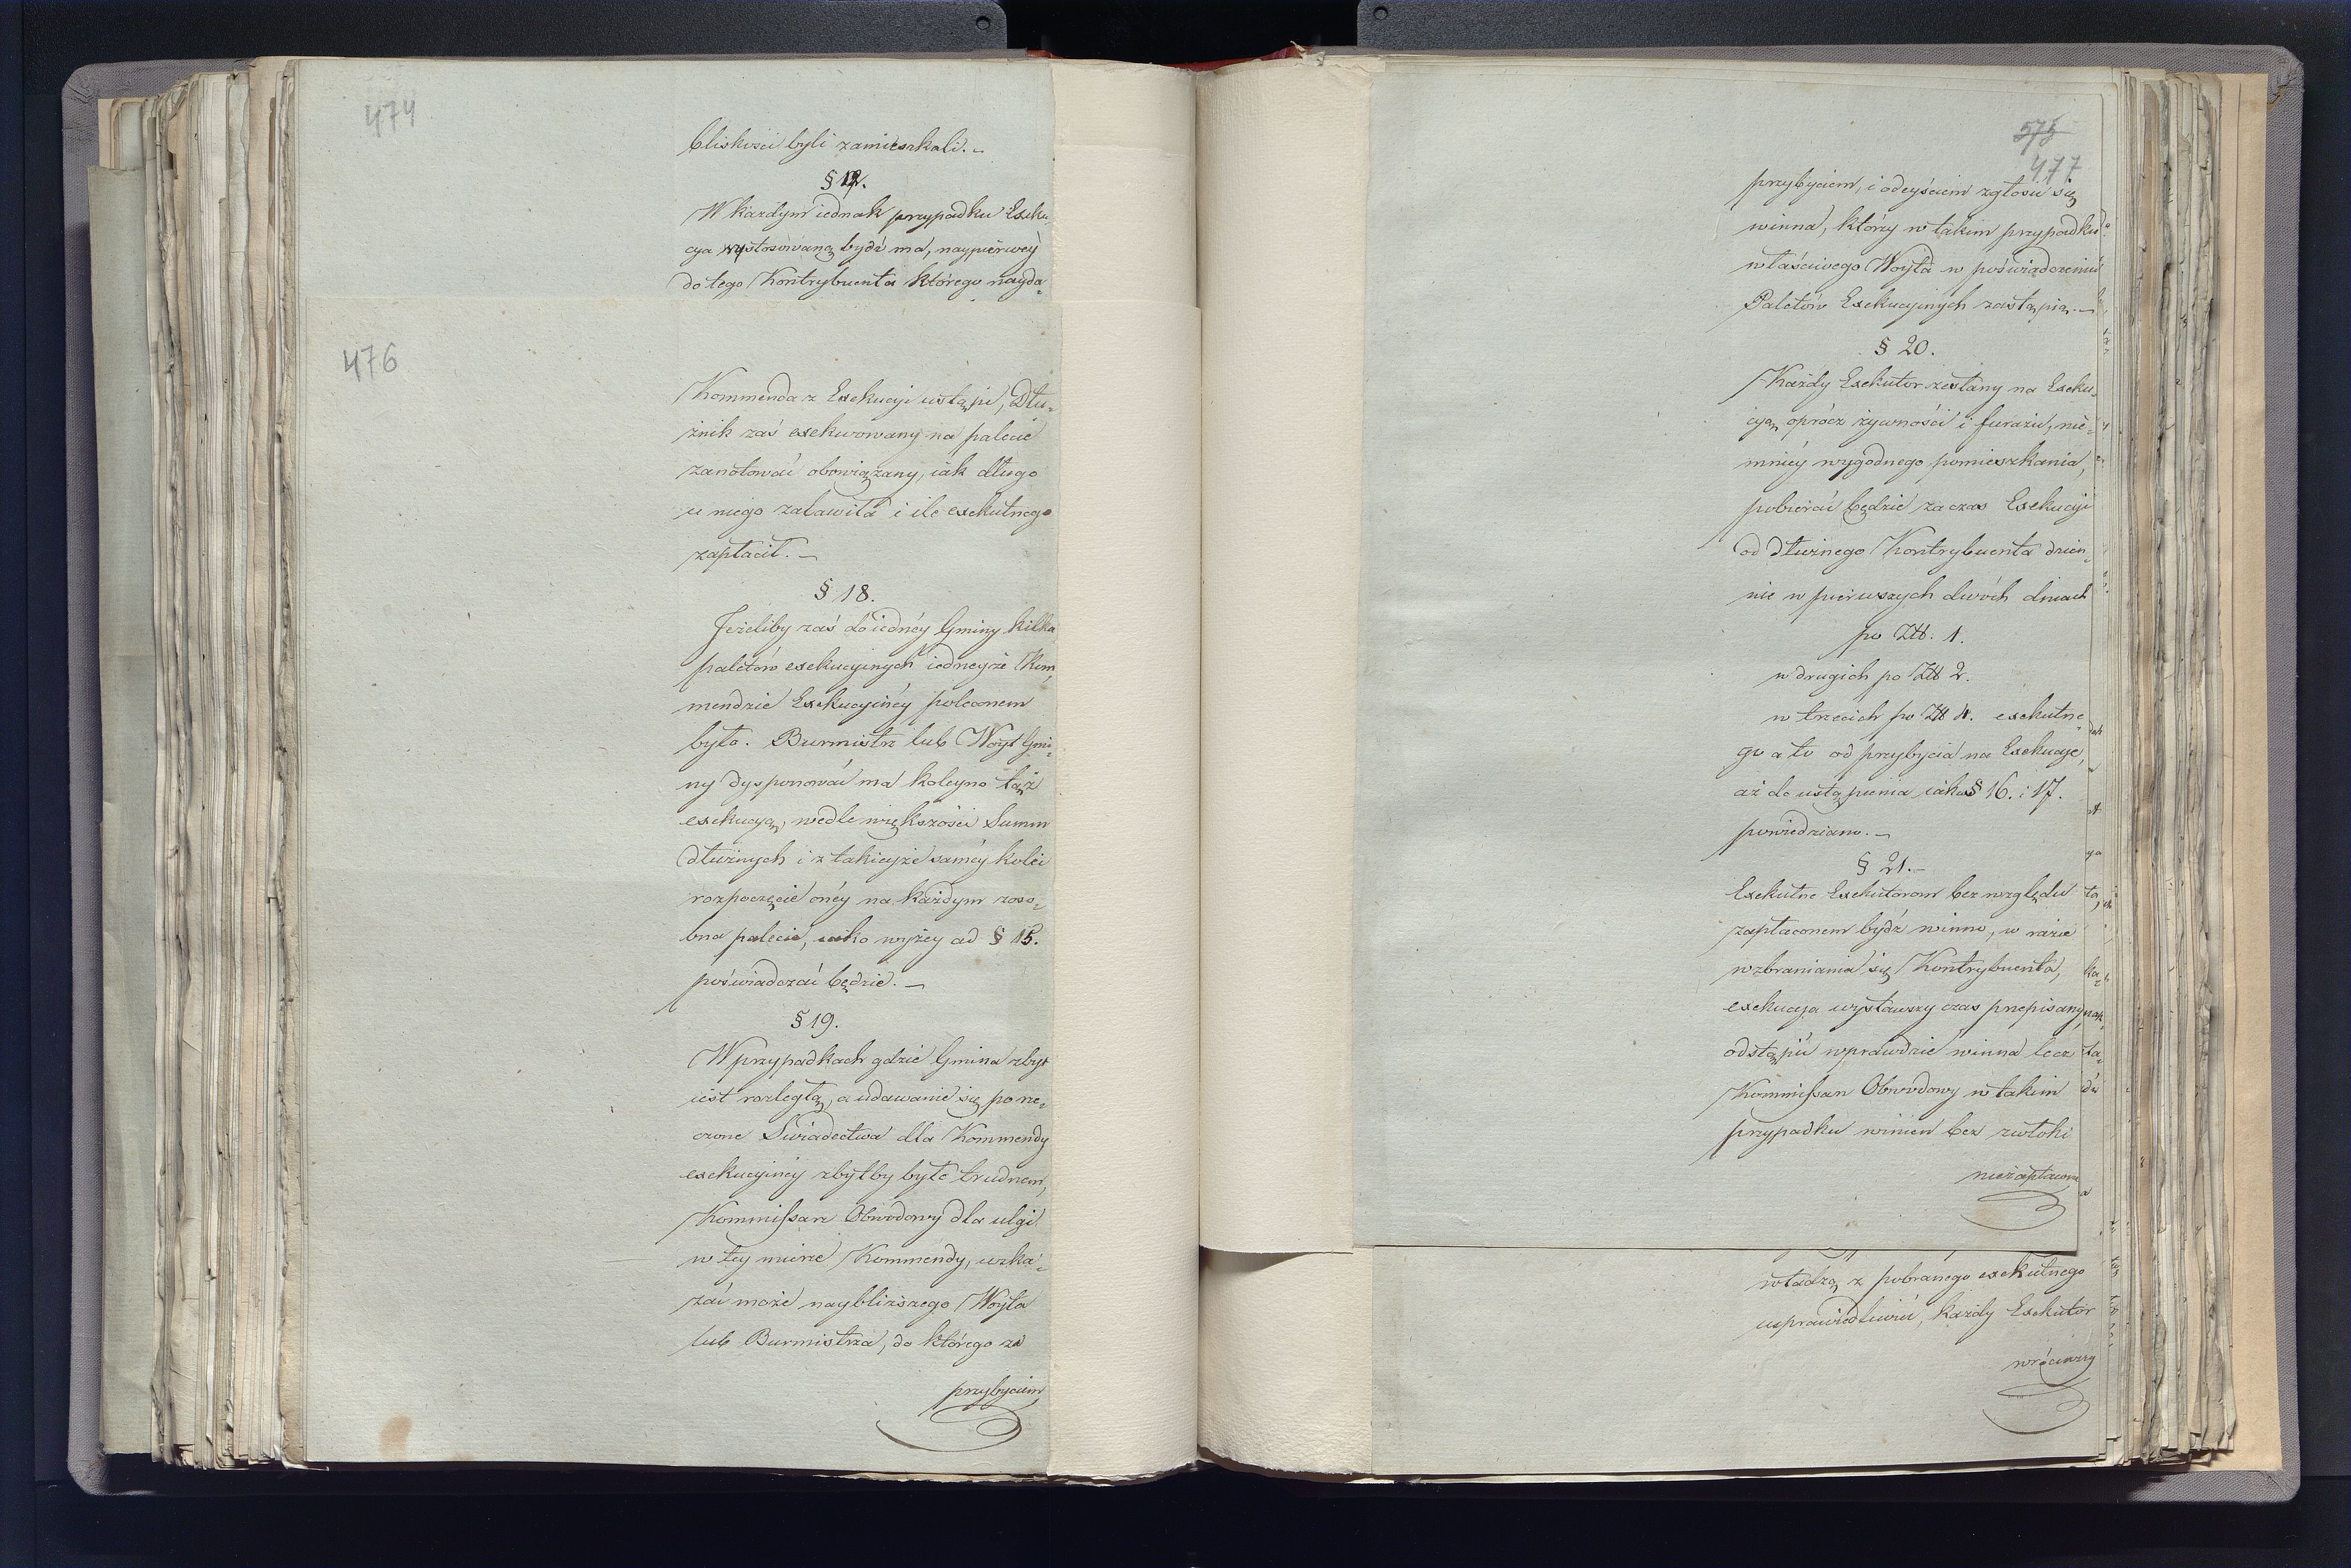 474
bliskości byli zamieszkali.
§ 12.
W każdym iednak przypadku Exeku
cya wystosowaną bydź ma, naypierwey
do tego Kontrybuenta którego nayda=
476
Kommenda z Exekucyi ustąpi, Dłu=
żnik zaś exekwowany na palecie
zanotować obowiązany, iak długo
u niego zabawiła i ile exekutnego
zapłacił.
§ 18.
Jeżeliby zaś do iednéy Gminy kilka
paletów exekucyinych iedneyże Kom,
mendzie Exekucyinéy poleconem
było. Burmistrz lub Woyt Gmi=
ny dysponować ma koleyno tąż
exekucyą, wedle większości Summ
dłużnych i z takieyże saméy kolei
rozpoczęcie onéy na każdym zoso=
bna palecie, iako wyżey ad § 15.
poświadczać będzie.
§ 19.
W przypadkach gdzie Gmina zbyt
iest rozległą, a udawanie się po rze=
czone Swiadectwa dla Kommendy
exekucyinéy zbytby było trudnem,
Kommissarz Obwodowy dla ulgi
w tey mierze Kommendy, wska=
zać może naybliższego Woyta
lub Burmistrza, do którego za
przybyciem
575
477
przybyciem, i odeyściem zgłosić się
winna, którzy w takim przypadku
właściwego Woyta w poświadczeniu
Paletów Exekucyinych zastąpią.
§ 20.
Każdy Exekutor zesłany na Exeku,
cyą, oprócz żywności i furażu, nie=
mniéy wygodnego pomieszkania,
pobierać będzie za czas Exekucyi
od dłużnego Kontrybuenta dzien=
nie w pierwszych dwóch dniach
po Zł: 1.
w drugich po Zł 2.
w trzecich po Zł 4. exekutne=
go a to od przybycia na Exekucye,
aż do ustąpienia iako § 16. i 17.
powiedziano.
§ 21.
Exekutne Exekutorom bez względu
zapłaconem bydź winno, w razie
wzbraniania się Kontrybuenta,
exekucya wystawszy czas przepisany
odstąpić wprawdzie winna lecz
Kommissarz Obwodowy w takim
przypadku winien bez zwłoki
niezapłacone
władzą z pobranego exekutnego
usprawiedliwić, każdy Exekutor
wróciwszy